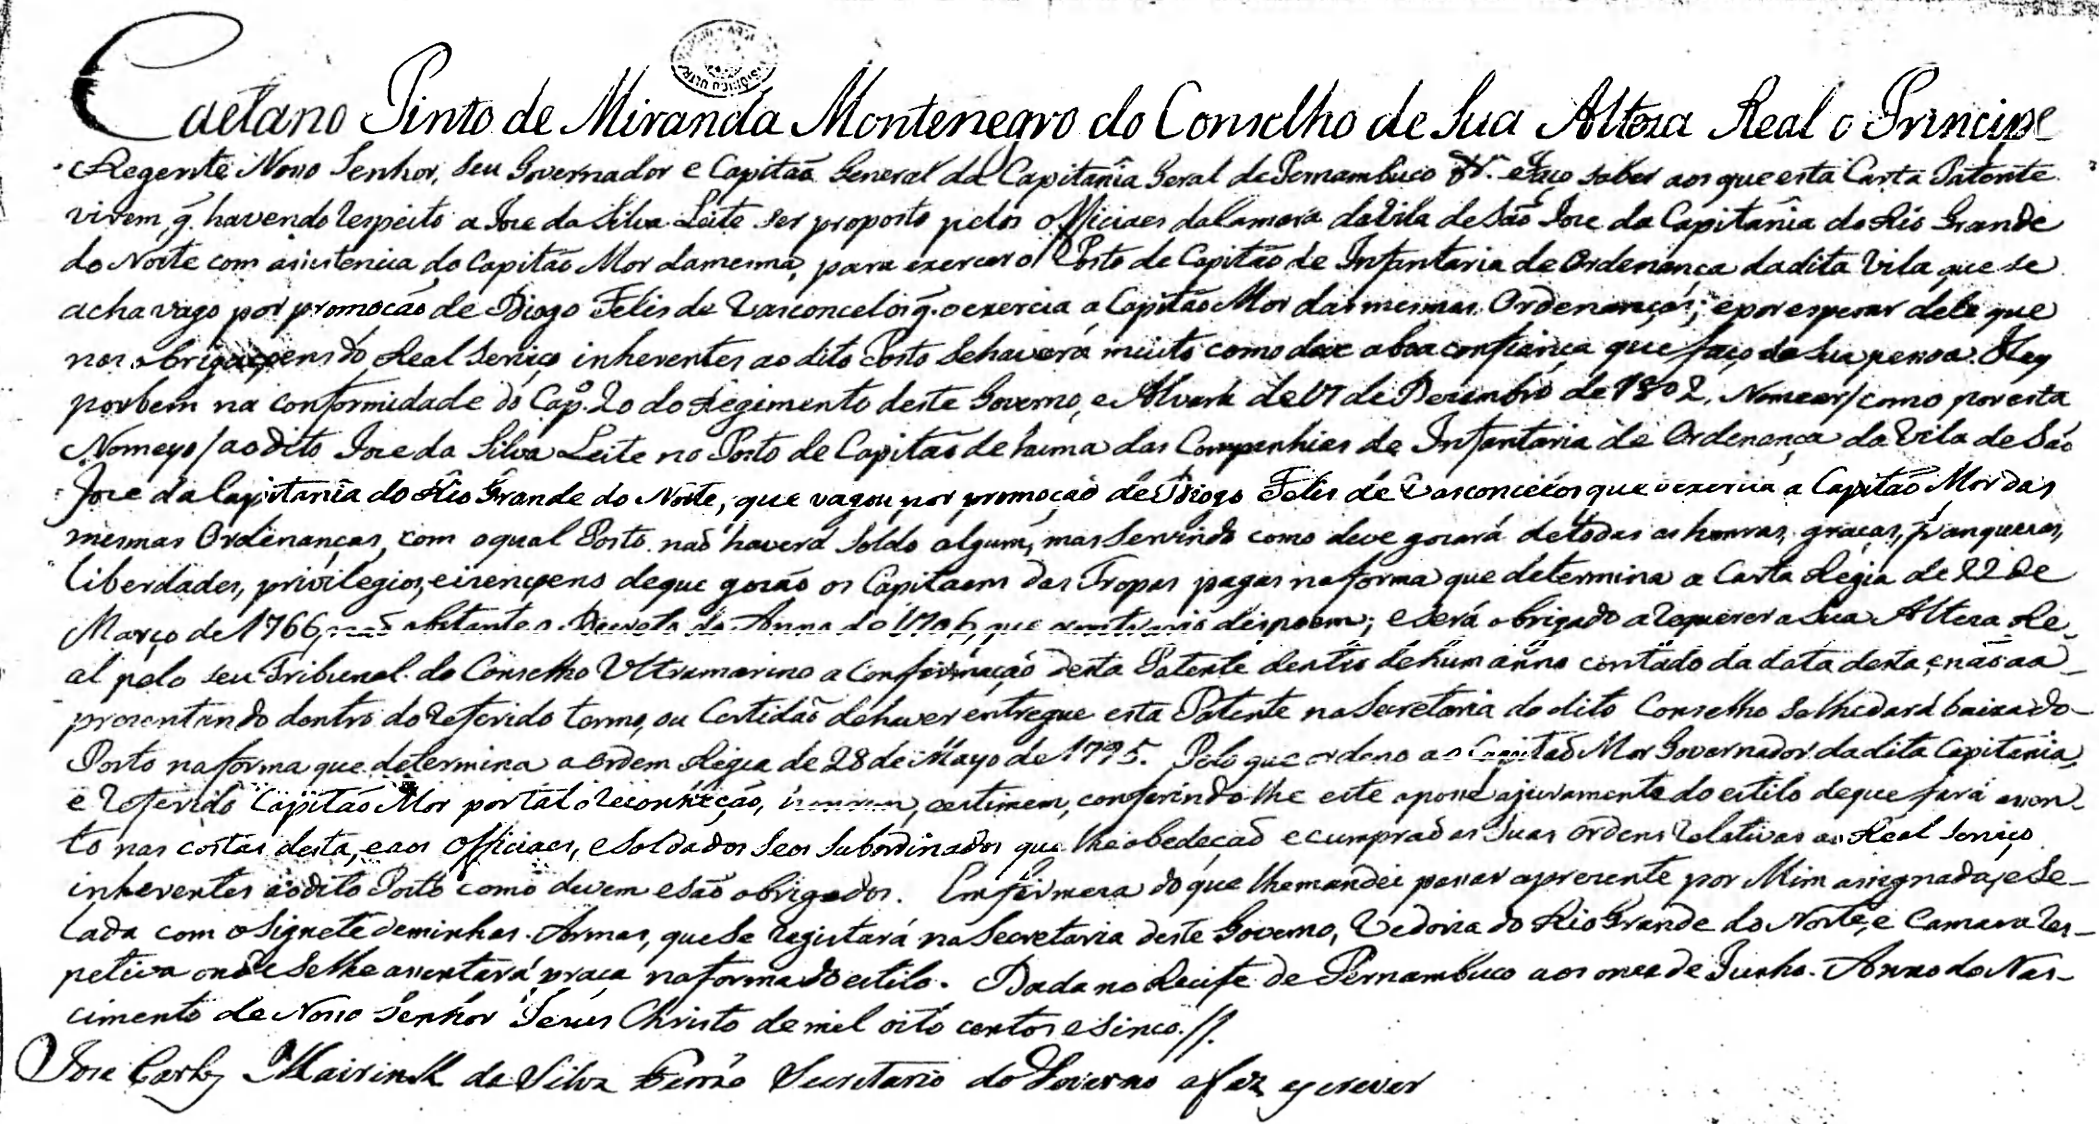 Caetano Pinto de Miranda Montenegro do Conselho de Sua Alteza Real o Principe
Regente Nosso Senhor, seu Governador e Capitaõ General da Capitania Geral de Pernambuco &.ª Faço saber aos que esta Carta Patente
virem, q̃ havendo respeito a Joze da Silva Leite ser proposto pelos Officiaes da Camara da Vila de São Joze da Capitania do Rio Grande
do Norte com assistencia do Capitão Mor da mesma, para exercer o Posto de Capitão de Infantaria de Ordenança da dita Vila, que se
acha vago por promoção de Diogo Felis de Vasconcelos q̃. o exercia a Capitão Mor das mesmas Ordenanças; e por esperar dele que
nas obrigaçoens do Real Serviço inherentes ao dito Posto se haverá muito como deve a boa confiança que faço da sua pessoa. Hey
por bem na conformidade do Cap.º 20 do Regimento deste Governo, e Alvará de 17 de Dezembro de 1802, Nomear/como por esta
Nomeyo/ao dito Joze da Silva Leite no Posto de Capitão de huma das Companhias de Infantaria de Ordenança da Vila de São
Joze da Capitania do Rio Grande do Norte, que vagou por promoção de Diogo Felis de Vasconcelos que o exercia a Capitão Mor das
mesmas Ordenanças, com o qual Posto naõ haverá Soldo algum, mas servindo como deve gozará de todas as honras, graças, franquezas,
liberdades, privilegios, e izençoens de que gozão os Capitaens das Tropas pagas na forma que determina a Carta Regia de 22 de
Março de 1766, não obstante o Decreto do Anno de 1706, que o contrario dispoem; e será obrigado a requerer a Sua Alteza Re-
al pelo seu Tribunal do Conselho Ultramarino a Confirmação desta Patente dentro de hum anno contado da data desta, e não a a-
prezentando dentro do referido termo, ou Certidão de haver entregue esta Patente na Secretaria do dito Conselho se lhe dará baixa do
Posto na forma que determina a Ordem Regia de 28 de Mayo de 1795. Pelo que ordeno ao Capitaõ Mor Governador da dita Capitania,
e referido Capitão Mor por tal o reconheção, honrem, e estimem, conferindo lhe este a posse e juramento do estilo de que fará assen-
to nas costas desta, e aos Officiaes, e Soldados Seos Subordinados que lhe obedeção e cumpraõ as suas ordens relativas ao Real Serviço
inherentes ao dito Posto como devem e são obrigados. Em firmeza do que lhe mandei passar a prezente por Mim assignada, e Se-
lada com o Signete de minhas Armas, que se registará na Secretaria deste Governo, Vedoria do Rio Grande do Norte, e Camara res-
petiva onde se lhe assentará praça na forma do estilo. Dada no Recife de Pernambuco aos onze de Junho. Anno do Nas-
cimento de Nosso Senhor Jesus Christo de mil oito centos e sinco.//.
Joze Carlos Mairink da Silva Ferrão Secretario do Governo a fez escrever